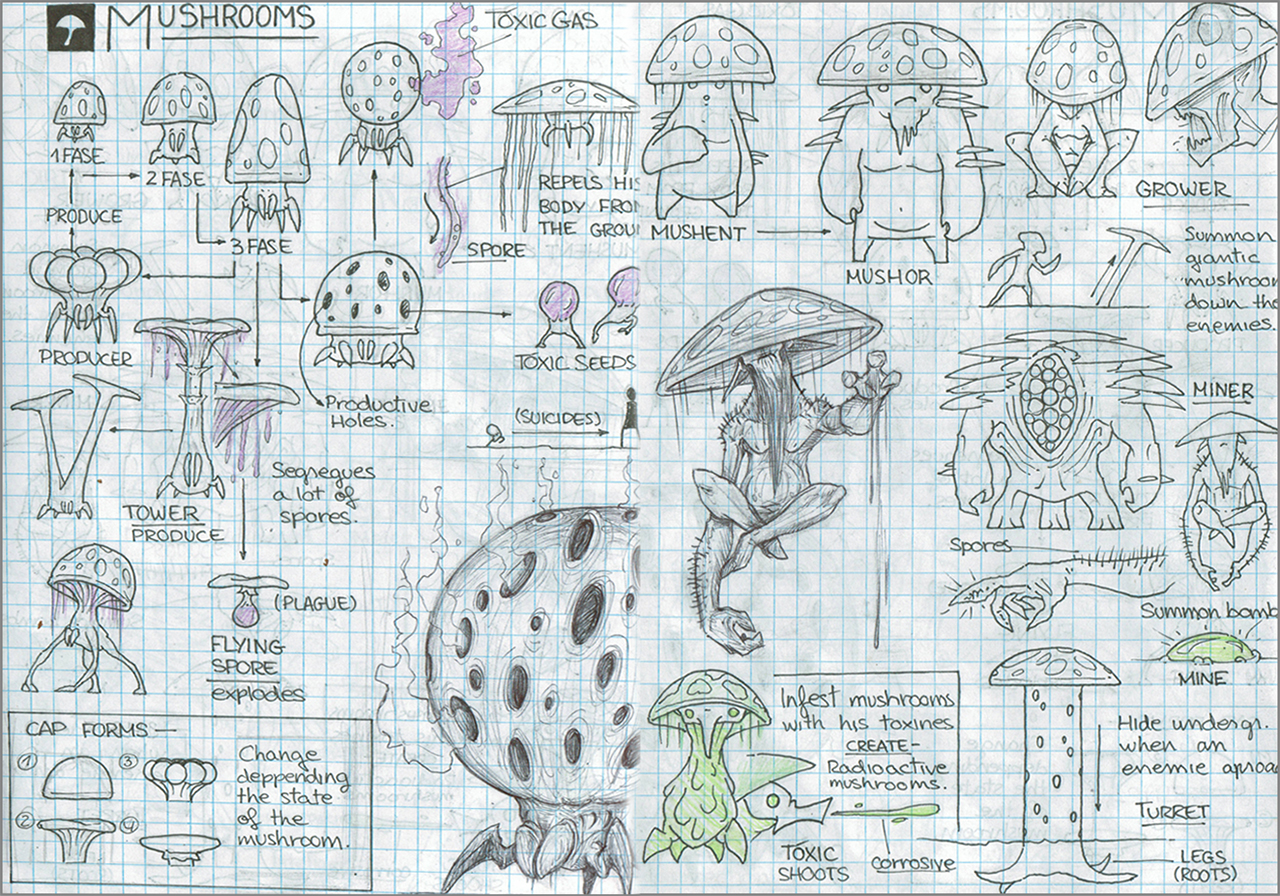 MUSHROOMS
TOXIC GAS
1 FASE
2 FASE
3 FASE
PRODUCE
PRODUCER
REPELS HIS
BODY FROM
THE GROU
SPORE
TOXIC SEEDS
(SUICIDES)
Productive
Holes.
Segregues
a lot of
spores.
TOWER
PRODUCE
(PLAGUE)
FLYING
SPORE
explodes
CAP FORMS
1
3
2
4
Change
deppending
the state
of the
mushroom.
MUSHENT
MUSHOR
GROWER
Summon
giantic
mushroom
down the
enemies.
MINER
Spores
Summon bomb
MINE
Infest mushrooms
with his toxines
CREATE-
Radioactive
mushrooms.
TOXIC
SHOOTS
corrosive
Hide undergr.
when an
enemie aproa
TURRET
LEGS
(ROOTS)